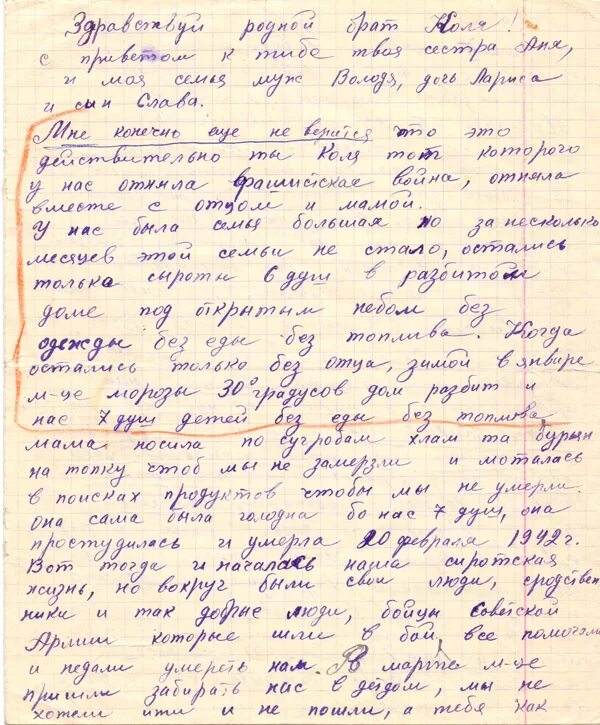 Здравствуй родной брат Коля!
с приветом к тибе твоя сестра Аня,
и моя семья муж Володя, дочь Лариса
и сын Слава.
Мне конечно еще не верится что это
действительно ты Коля тот которого
у нас отняла фашистская война, отняла
вместе с отцом и мамой.
У нас была семья большая но за несколько
месяцев этой семьи не стало, остались
только сыроты 6 душ в разбитом
доме под открытым небом без
одежды без еды без топлива. Когда
остались только без отца, зимой в январе
м-це морозы 30° градусов дом разбит и
нас 7 душ детей без еды без топлива,
мама носила по сугробам хлам та бурьян
на топку чтоб мы не замерзли и моталась
в поисках продуктов чтобы мы не умерли.
она сама была голодна бо нас 7 душ, она
простудилась и умерла 20 февраля 1942 г.
Вот тогда и началась наша сиротская
жизнь, но вокруг были свои люди, сродствен
ники и так добрые люди, бойцы Советской
Армии которые шли в бой, все помогали
и недали умереть нам. В марте м-це
пришли забирать нас в детдом, мы не
хотели ити и не пошли, а тебя как